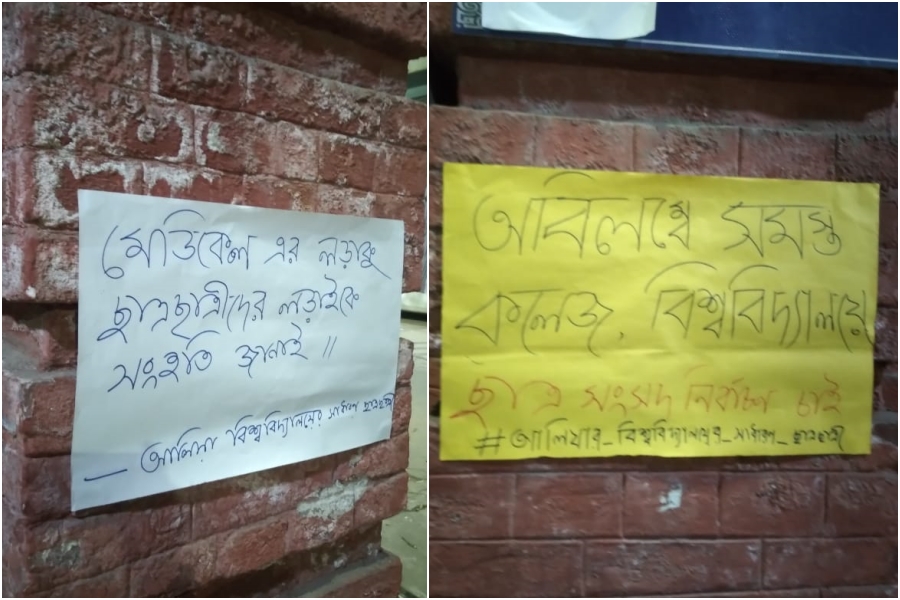 মেডিকেল এর লড়াকু
ছাত্রছাত্রীদের লড়াইকে
সংহতি জানাই ।।
— আলিয়া বিশ্ববিদ্যালয়ের সাধারণ ছাত্রছাত্রী
অবিলম্বে সমস্ত
কলেজ, বিশ্ববিদ্যালয়ে
ছাত্র সংসদ নির্বাচন চাই
#আলিয়ার_বিশ্ববিদ্যালয়ের_সাধারণ_ছাত্রছাত্রী